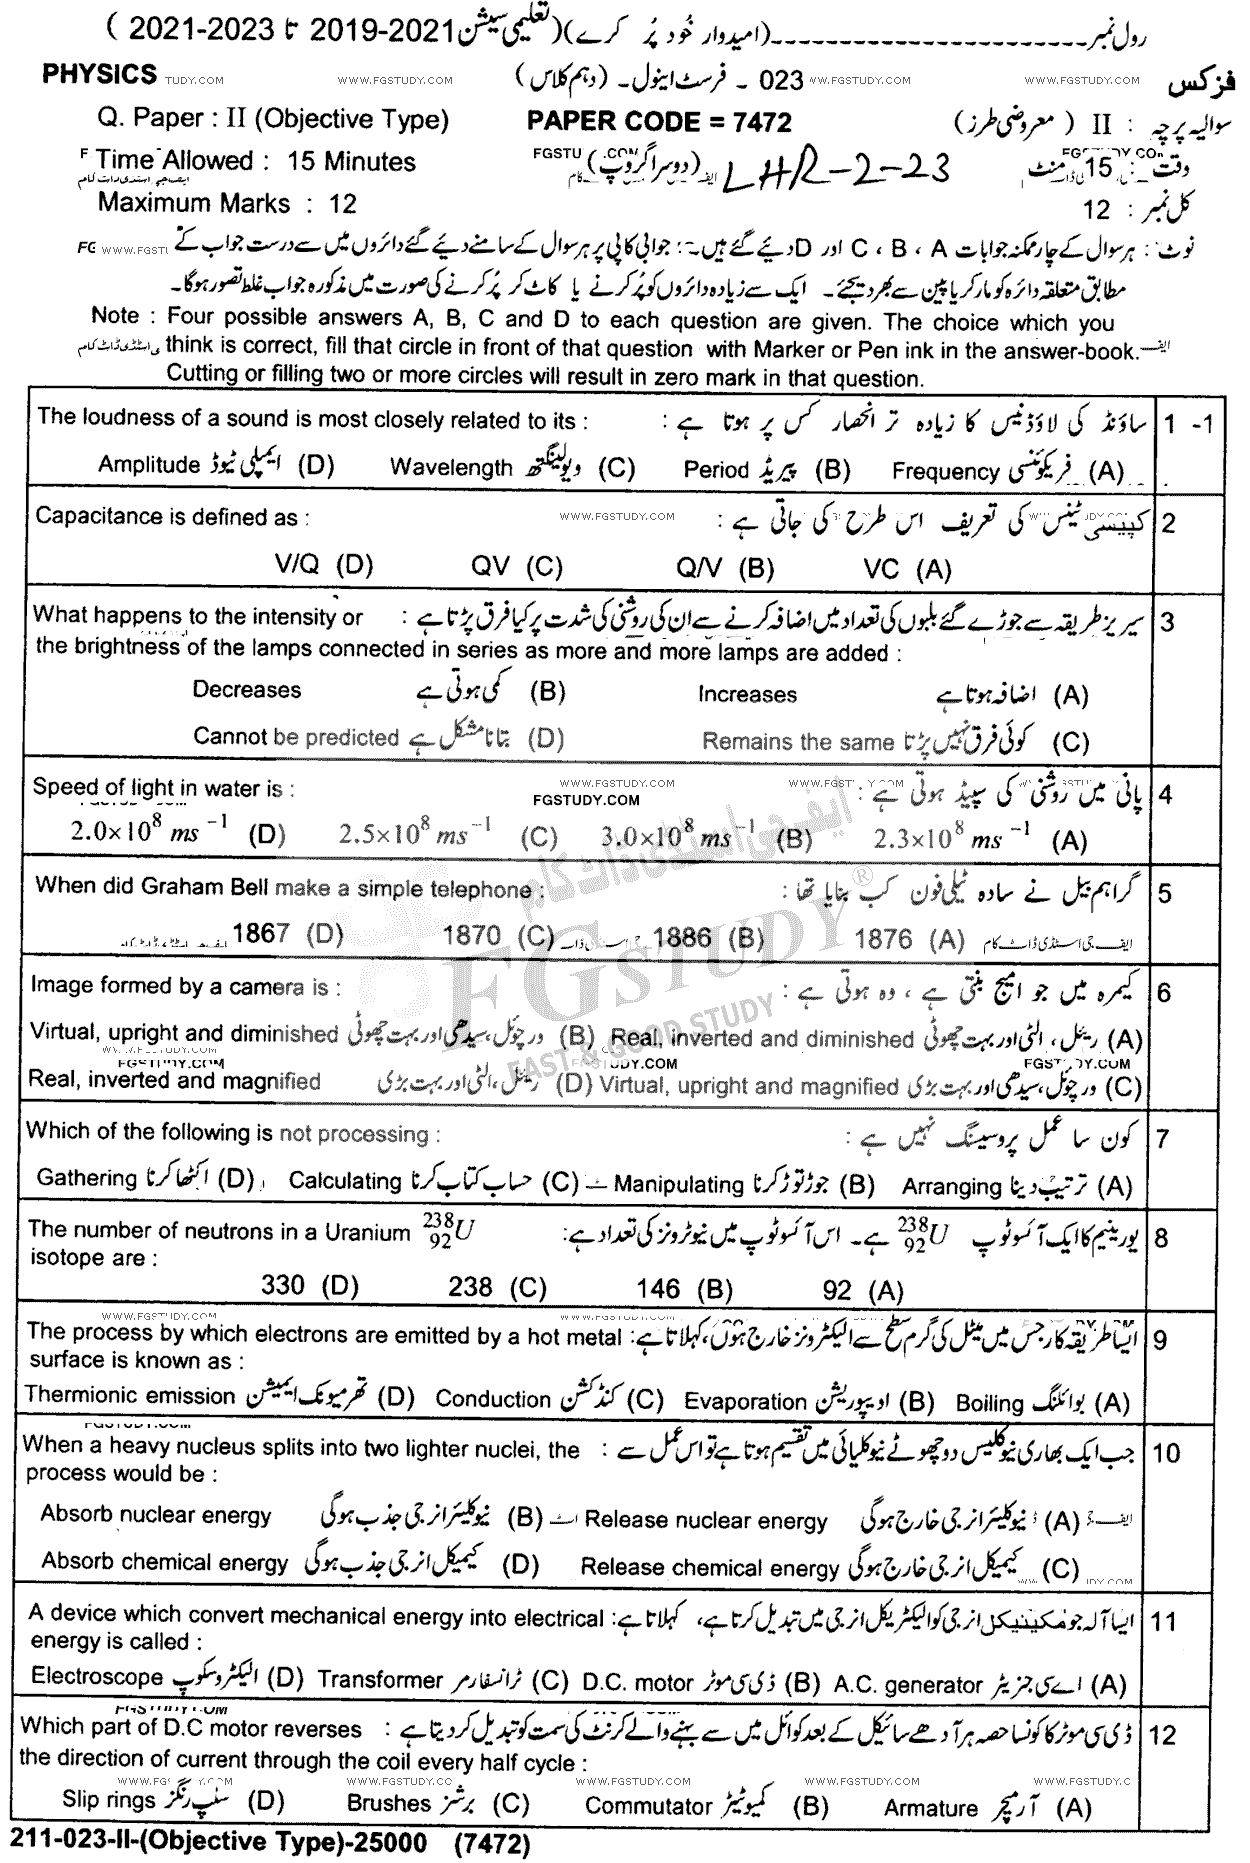 رول نمبر ـــــــــــــــــــــــــــ (امیدوار خُود پُر کرے) (تعلیمی سیشن 2021-2019 تا 2023-2021 )
PHYSICS 023 - فرسٹ اینول - (دہم کلاس) فزکس
Q. Paper : II (Objective Type) PAPER CODE = 7472 سوالیہ پرچہ : II ( معروضی طرز)
Time Allowed : 15 Minutes (دوسرا گروپ) LHR-2-23 وقت : 15 منٹ
Maximum Marks : 12 کل نمبر : 12
نوٹ : ہر سوال کے چار ممکنہ جوابات A ، B ، C اور D دیئے گئے ہیں ۔ جوابی کاپی پر ہر سوال کے سامنے دیئے گئے دائروں میں سے درست جواب کے
مطابق متعلقہ دائرہ کو مارکر یا پین سے بھر دیجئے ۔ ایک سے زیادہ دائروں کو پُر کرنے یا کاٹ کر پُر کرنے کی صورت میں مذکورہ جواب غلط تصور ہوگا ۔
Note : Four possible answers A, B, C and D to each question are given. The choice which you
think is correct, fill that circle in front of that question with Marker or Pen ink in the answer-book.
Cutting or filling two or more circles will result in zero mark in that question.
The loudness of a sound is most closely related to its : ساؤنڈ کی لاؤڈنیس کا زیادہ تر انحصار کس پر ہوتا ہے : 1 -1
Amplitude ایمپلی ٹیوڈ (D) Wavelength ویولینگتھ (C) Period پیریڈ (B) Frequency فریکوئنسی (A)
Capacitance is defined as : WWW.FGSTUDY.COM کپیسی ٹینس کی تعریف اس طرح کی جاتی ہے : 2
V/Q (D) QV (C) Q/V (B) VC (A)
What happens to the intensity or سیریز طریقہ سے جوڑے گئے بلبوں کی تعداد میں اضافہ کرنے سے ان کی روشنی کی شدت پر کیا فرق پڑتا ہے : 3
the brightness of the lamps connected in series as more and more lamps are added :
Decreases کمی ہوتی ہے (B) Increases اضافہ ہوتا ہے (A)
Cannot be predicted بتانا مشکل ہے (D) Remains the same کوئی فرق نہیں پڑتا (C)
Speed of light in water is : FGSTUDY.COM پانی میں روشنی کی سپیڈ ہوتی ہے : 4
2.0×10⁸ ms⁻¹ (D) 2.5×10⁸ ms⁻¹ (C) 3.0×10⁸ ms⁻¹ (B) 2.3×10⁸ ms⁻¹ (A)
When did Graham Bell make a simple telephone : گراہم بیل نے سادہ ٹیلی فون کب بنایا تھا : 5
1867 (D) 1870 (C) 1886 (B) 1876 (A)
FGSTUDY ®
FAST & GOOD STUDY
Image formed by a camera is : کیمرہ میں جو امیج بنتی ہے ، وہ ہوتی ہے : 6
Virtual, upright and diminished ورچوئل، سیدھی اور بہت چھوٹی (B) Real, inverted and diminished ریئل، الٹی اور بہت چھوٹی (A)
Real, inverted and magnified ریئل، الٹی اور بہت بڑی (D) Virtual, upright and magnified ورچوئل، سیدھی اور بہت بڑی (C)
Which of the following is not processing : کون سا عمل پروسیسنگ نہیں ہے : 7
Gathering اکٹھا کرنا (D) Calculating حساب کتاب کرنا (C) Manipulating جوڑ توڑ کرنا (B) Arranging ترتیب دینا (A)
The number of neutrons in a Uranium ²³⁸₉₂U یورینیم کا ایک آئسوٹوپ ²³⁸₉₂U ہے۔ اس آئسوٹوپ میں نیوٹرونز کی تعداد ہے: 8
isotope are :
330 (D) 238 (C) 146 (B) 92 (A)
The process by which electrons are emitted by a hot metal : ایسا طریقہ کار جس میں میٹل کی گرم سطح سے الیکٹرونز خارج ہوں، کہلاتا ہے 9
surface is known as :
Thermionic emission تھرمیونک ایمیشن (D) Conduction کنڈکشن (C) Evaporation ایویپوریشن (B) Boiling بوائلنگ (A)
When a heavy nucleus splits into two lighter nuclei, the جب ایک بھاری نیوکلیس دو چھوٹے نیوکلیائی میں تقسیم ہوتا ہے تو اس عمل سے : 10
process would be :
Absorb nuclear energy نیوکلیئر انرجی جذب ہوگی (B) Release nuclear energy نیوکلیئر انرجی خارج ہوگی (A)
Absorb chemical energy کیمیکل انرجی جذب ہوگی (D) Release chemical energy کیمیکل انرجی خارج ہوگی (C)
A device which convert mechanical energy into electrical : ایسا آلہ جو مکینیکل انرجی کو الیکٹریکل انرجی میں تبدیل کرتا ہے، کہلاتا ہے 11
energy is called :
Electroscope الیکٹروسکوپ (D) Transformer ٹرانسفارمر (C) D.C. motor ڈی سی موٹر (B) A.C. generator اے سی جنریٹر (A)
Which part of D.C motor reverses ڈی سی موٹر کا کونسا حصہ ہر آدھے سائیکل کے بعد کوائل میں سے بہنے والے کرنٹ کی سمت کو تبدیل کر دیتا ہے : 12
the direction of current through the coil every half cycle :
Slip rings سلپ رنگز (D) Brushes برشز (C) Commutator کمیوٹیٹر (B) Armature آرمیچر (A)
211-023-II-(Objective Type)-25000 (7472)